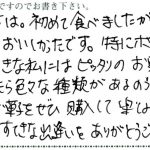 ですのでお書き下さい。
は。初めて食べましたが
おいしかったです。特にホ
きな私にはピッタリのお
ら色々な種類があるのう
ぜひ購入して
すてきな出逢いをありがとうご